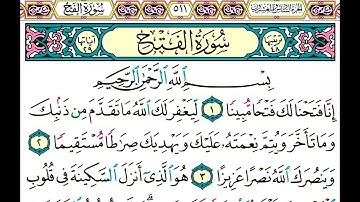 سُورَةُ الفَتْحِ ٥١١ الجزء السادس والعشرون
آياتها ٢٩ سُورَةُ الْفَتْحِ ٤٨
بِسْمِ اللَّهِ الرَّحْمَٰنِ الرَّحِيمِ
إِنَّا فَتَحْنَا لَكَ فَتْحًا مُّبِينًا ١ لِّيَغْفِرَ لَكَ اللَّهُ مَا تَقَدَّمَ مِن ذَنۢبِكَ
وَمَا تَأَخَّرَ وَيُتِمَّ نِعْمَتَهُۥ عَلَيْكَ وَيَهْدِيَكَ صِرَٰطًا مُّسْتَقِيمًا ٢
وَيَنصُرَكَ اللَّهُ نَصْرًا عَزِيزًا ٣ هُوَ الَّذِىٓ أَنزَلَ السَّكِينَةَ فِى قُلُوبِ